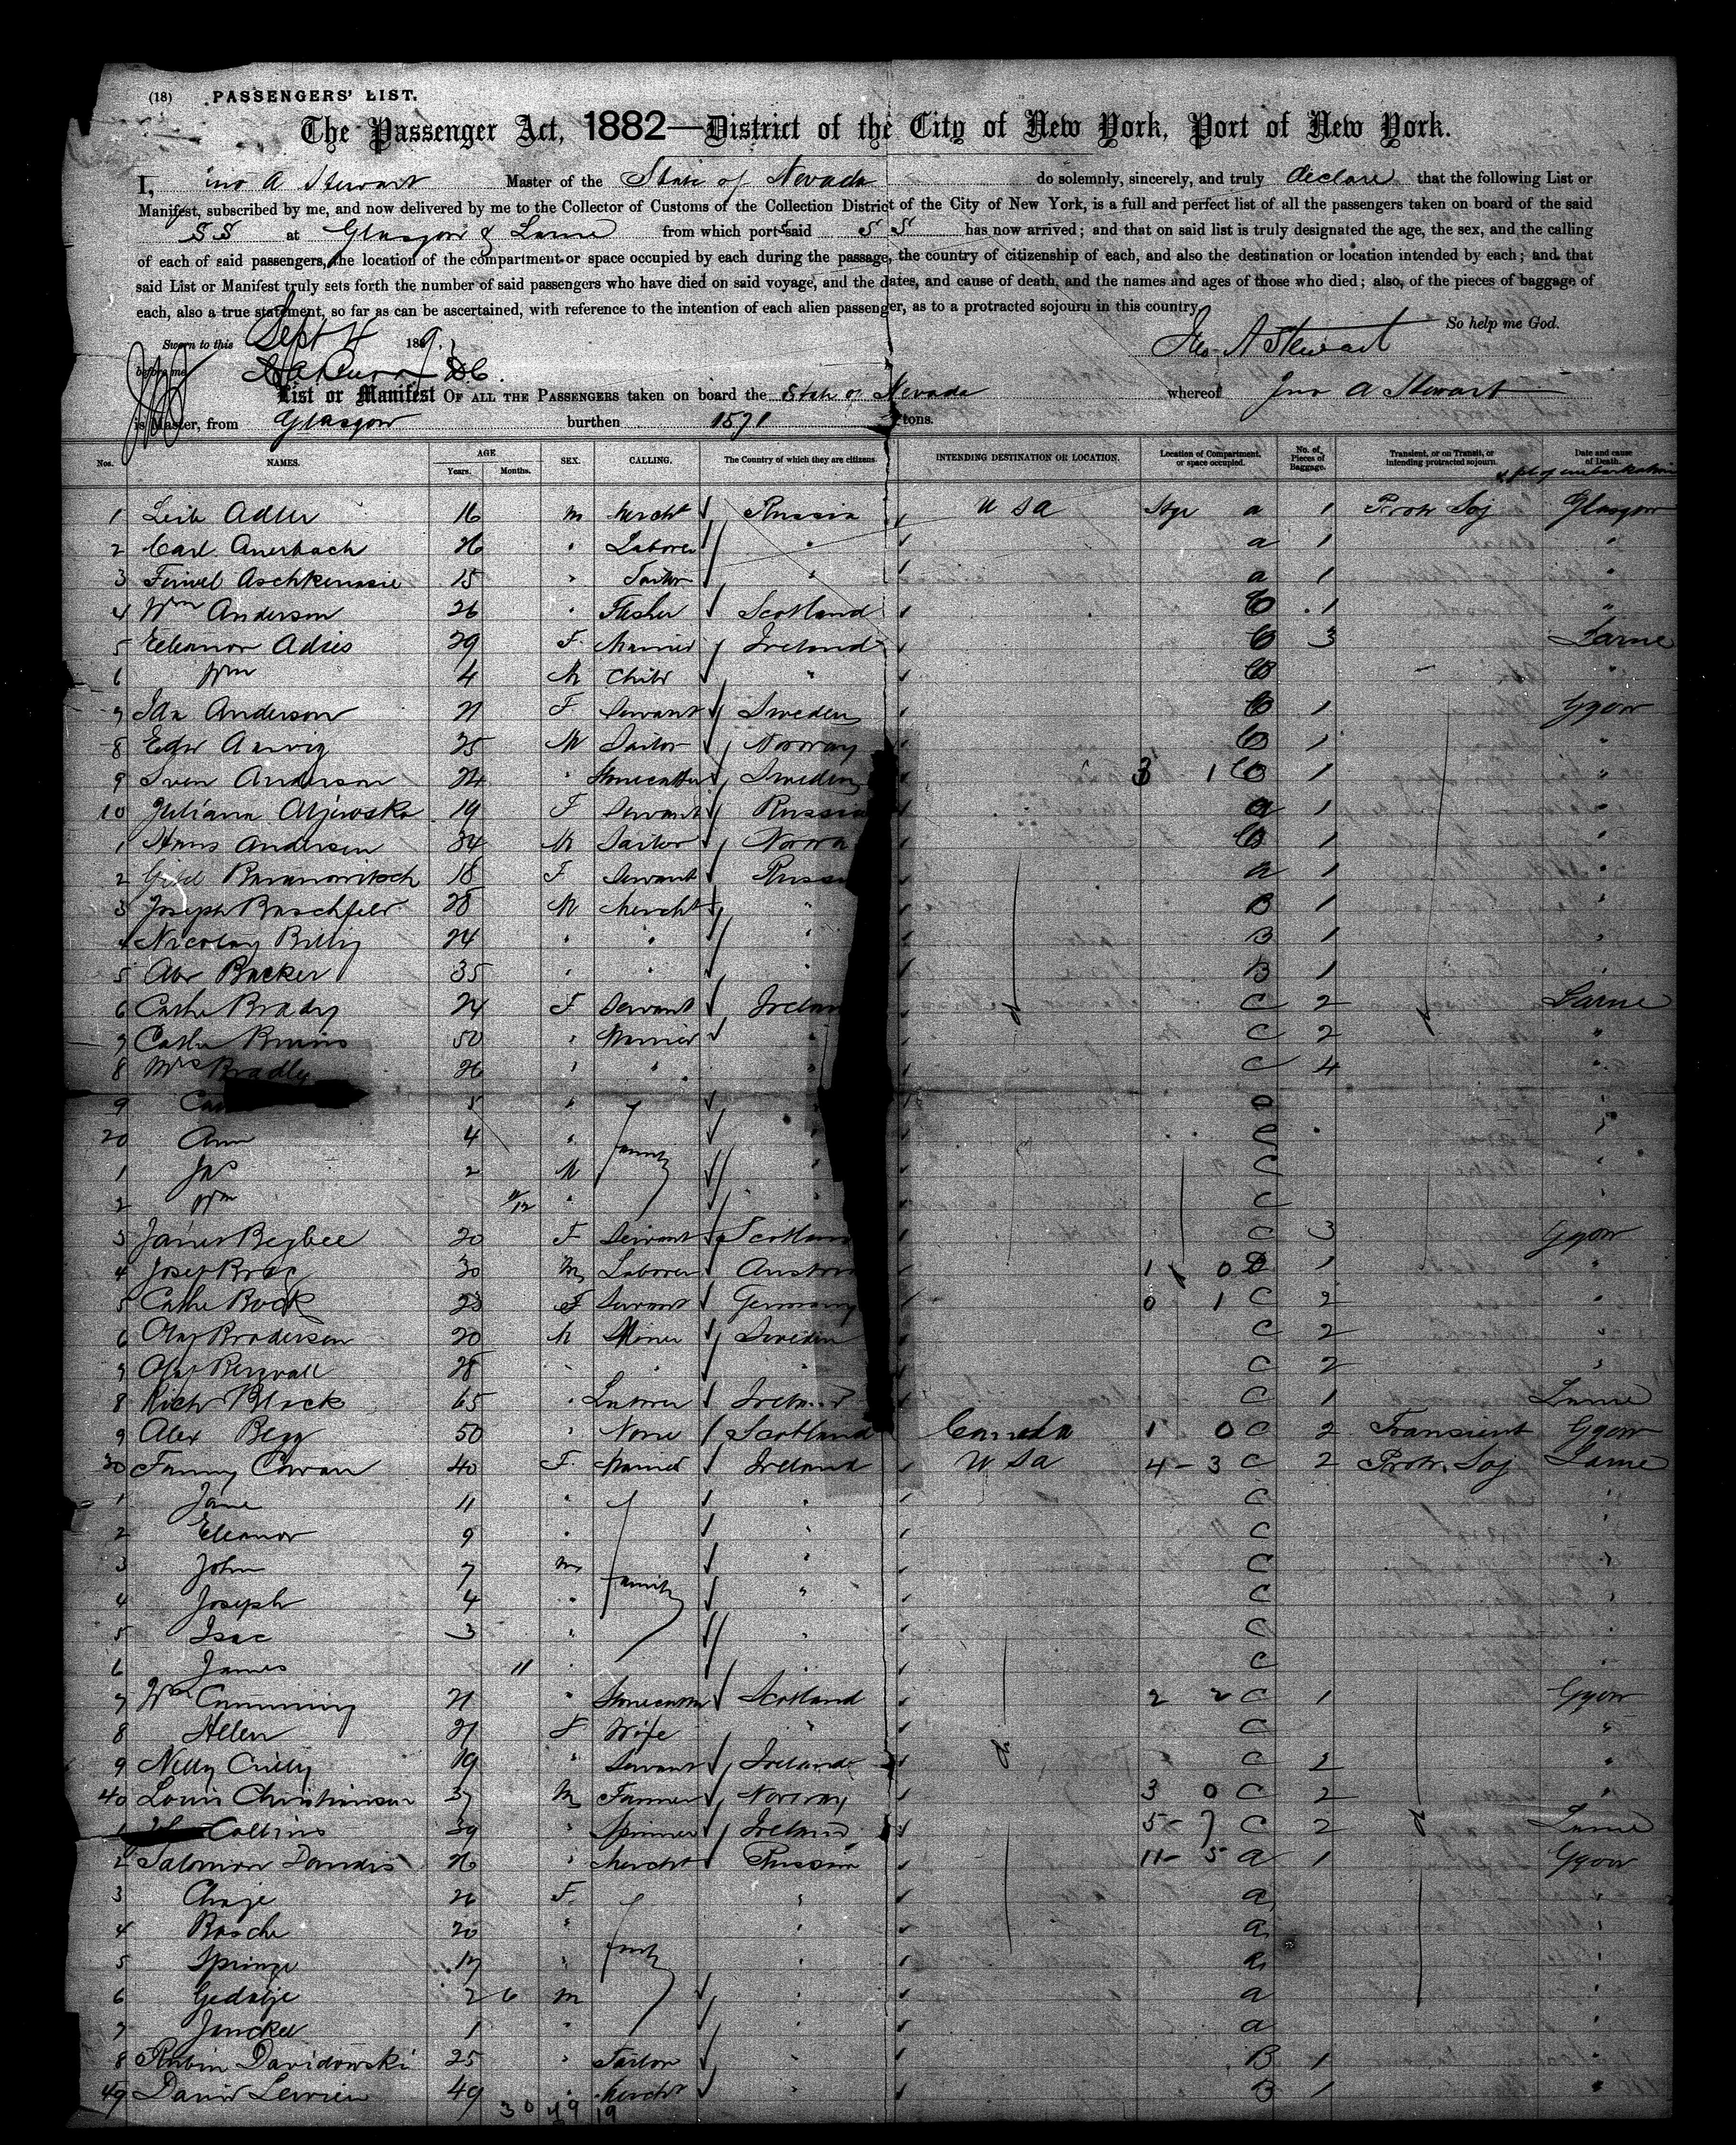 (18) PASSENGERS' LIST.
The Passenger Act, 1882—District of the City of New York, Port of New York.
I, Jno A Stewart Master of the State of Nevada do solemnly, sincerely, and truly declare that the following List or
Manifest, subscribed by me, and now delivered by me to the Collector of Customs of the Collection District of the City of New York, is a full and perfect list of all the passengers taken on board of the said
SS at Glasgow & Larne from which port said SS has now arrived; and that on said list is truly designated the age, the sex, and the calling
of each of said passengers, the location of the compartment or space occupied by each during the passage, the country of citizenship of each, and also the destination or location intended by each; and that
said List or Manifest truly sets forth the number of said passengers who have died on said voyage, and the dates, and cause of death, and the names and ages of those who died; also, of the pieces of baggage of
each, also a true statement, so far as can be ascertained, with reference to the intention of each alien passenger, as to a protracted sojourn in this country.
So help me God.
Sworn to this Sept 188 Jno A Stewart
before me
List or Manifest OF ALL THE PASSENGERS taken on board the State of Nevada whereof Jno A Stewart
is Master, from Glasgow burthen 1571 tons.
Nos. NAMES. AGE Years. Months. SEX. CALLING. The Country of which they are citizens. INTENDING DESTINATION OR LOCATION. Location of Compartment, or space occupied. No. of Pieces of Baggage. Transient, or on Transit, or intending protracted sojourn. Date and cause of Death. & pt of embarkation
1 Leib Adler 16 m Mercht Russia U S A Stge a 1 Protr Soj Glasgow
2 Carl Auerbach 26 " Laborer " a 1 "
3 Feiwel Aschkenasie 15 " Tailor " a 1 "
4 Wm Anderson 26 " Flesher Scotland 1 "
5 Eleanor Adies 29 F Married Ireland 3 Larne
6 Wm 4 M Child " "
7 Ida Anderson 21 F Servant Sweden 1 Ggow
8 Edw 25 M Sailor Norway 1 "
9 Sven Anderson 24 " Stonecutter Sweden 3 1 1 "
10 Juliana 19 F Servant Russia a 1 "
1 Hans Andersen 34 M Sailor Norwa 1 "
2 Baranowitsch 18 F Servant Russi a 1 "
3 Joseph Baschfeld 28 M Mercht " B 1 "
4 Nicolay Billig 24 " " " B 1 "
5 Abr Backer 35 " " B 1 "
6 Cathe Brady 24 F Servant Irelan C 2 Larne
7 Cathe 50 " Married " C 2 "
8 Mrs Bradly 26 " " " C 4 "
9 Ca " " "
20 Ann 4 " family " C "
1 Jas 2 M " C "
2 Wm " " C "
3 Begbee 20 F Servant Scotlan C 3 Ggow
4 Josef 30 M Laborer Austri 1 0 1 "
5 Cathe Bock 23 F Servant Germany 0 1 C 2 "
6 Olaf Brodersen 20 M Miner Sweden C 2 "
7 Olaf Bergvall 28 " " " C 2 "
8 Richd Black 65 " Laborer Ireland C 1 Larne
9 Alex Begg 50 " None Scotland Canada 1 0 C 2 Transient Ggow
30 Fanny Cowan 40 F Married Ireland U S A 4 - 3 C 2 Protr. Soj Larne
1 Jane 11 " " C "
2 Eleanor 9 " " C "
3 John 7 m " C "
4 Joseph 4 " family " C "
5 Isac 3 " C "
6 James 11 " C "
7 Wm Cumming 21 " Stonecutter Scotland 2 2 C 1 Ggow
8 Helen 21 F Wife " C "
9 Nelly Crilly 19 " Servant Ireland C 2 "
40 Louis Christiansen 37 M Farmer Norway 3 0 C 2 "
1 Collins 39 " Spinner Ireland 5 - 7 C 2 Larne
2 Salomon 26 " Mercht Russia 11 - 5 a 1 Ggow
3 Chaje 26 F " a "
4 Basche 20 " " a "
5 Sprinze 17 " family " a "
6 Gedalje 2 6 m " a "
7 Janckel 1 " " a "
8 Rubin Davidowski 25 " Tailor " B 1 "
49 David 49 " Mercht " B 1 "
30 49 19